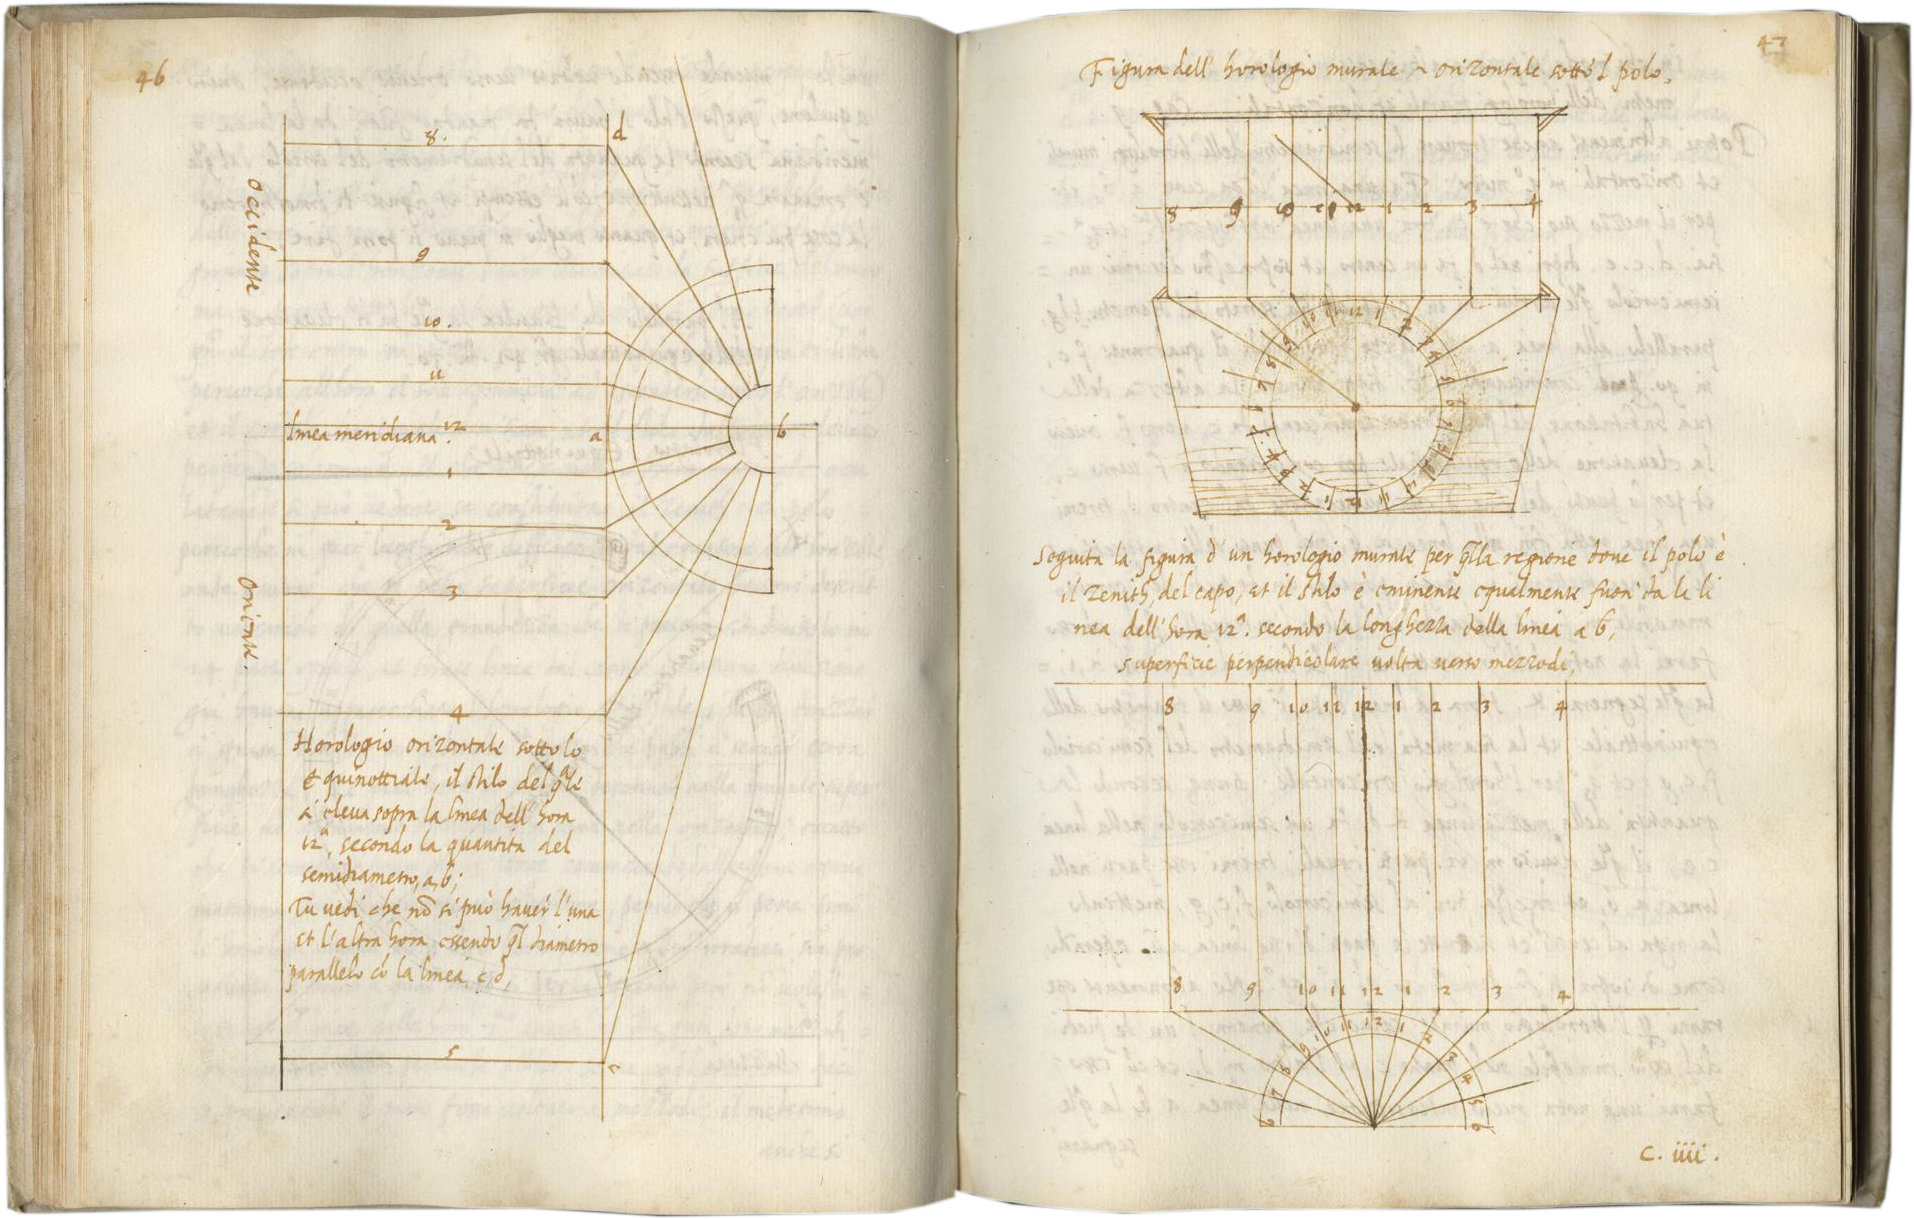 46
8.
d
occidente
9
10.
11
linea meridiana 12.
a
b
1
2
3
oriente.
4
Horologio orizontale sotto lo
equinottiale, il stilo del qle
s'eleva sopra la linea dell' hora
12a, secondo la quantita del
semidiametro, a, b;
Tu vedi che nõ si può haver l'una
et l'altra hora essendo ql diametro
parallelo cõ la linea, c, d,
5
c
47
Figura dell' horologio murale orizontale sotto l polo.
8 9 10 11 12 1 2 3 4
9 10 11 12 1 2 3 4
8 7 6 5 4 3 2 1 12 11
5 6 7 8 9 10 11
Seguita la figura d'un horologio murale per qlla regione dove il polo è
il Zenith, del capo, et il stilo è eminente equalmente fuori da la li
nea dell' hora 12a. secondo la longhezza della linea a b,
superficie perpendicolare volta verso mezzodi,
8 9 10 11 12 1 2 3 4
8 9 10 11 12 1 2 3 4
6 7 8 9 10 11 12 1 2 3 4 5 6
C. iiii.